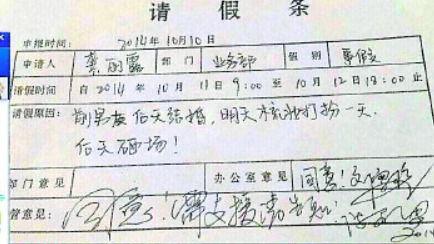 请 假 条
申报时间: 2014年10月10日
申请人 龚丽露 部门 业务部 假别 事假
请假时间 自2014年10月11日9:00至10月12日18:00止
请假原因: 前男友后天结婚,明天梳妆打扮一天.
后天砸场!
部门意见 办公室意见 同意!
管意见: 同意!需支援请告知!